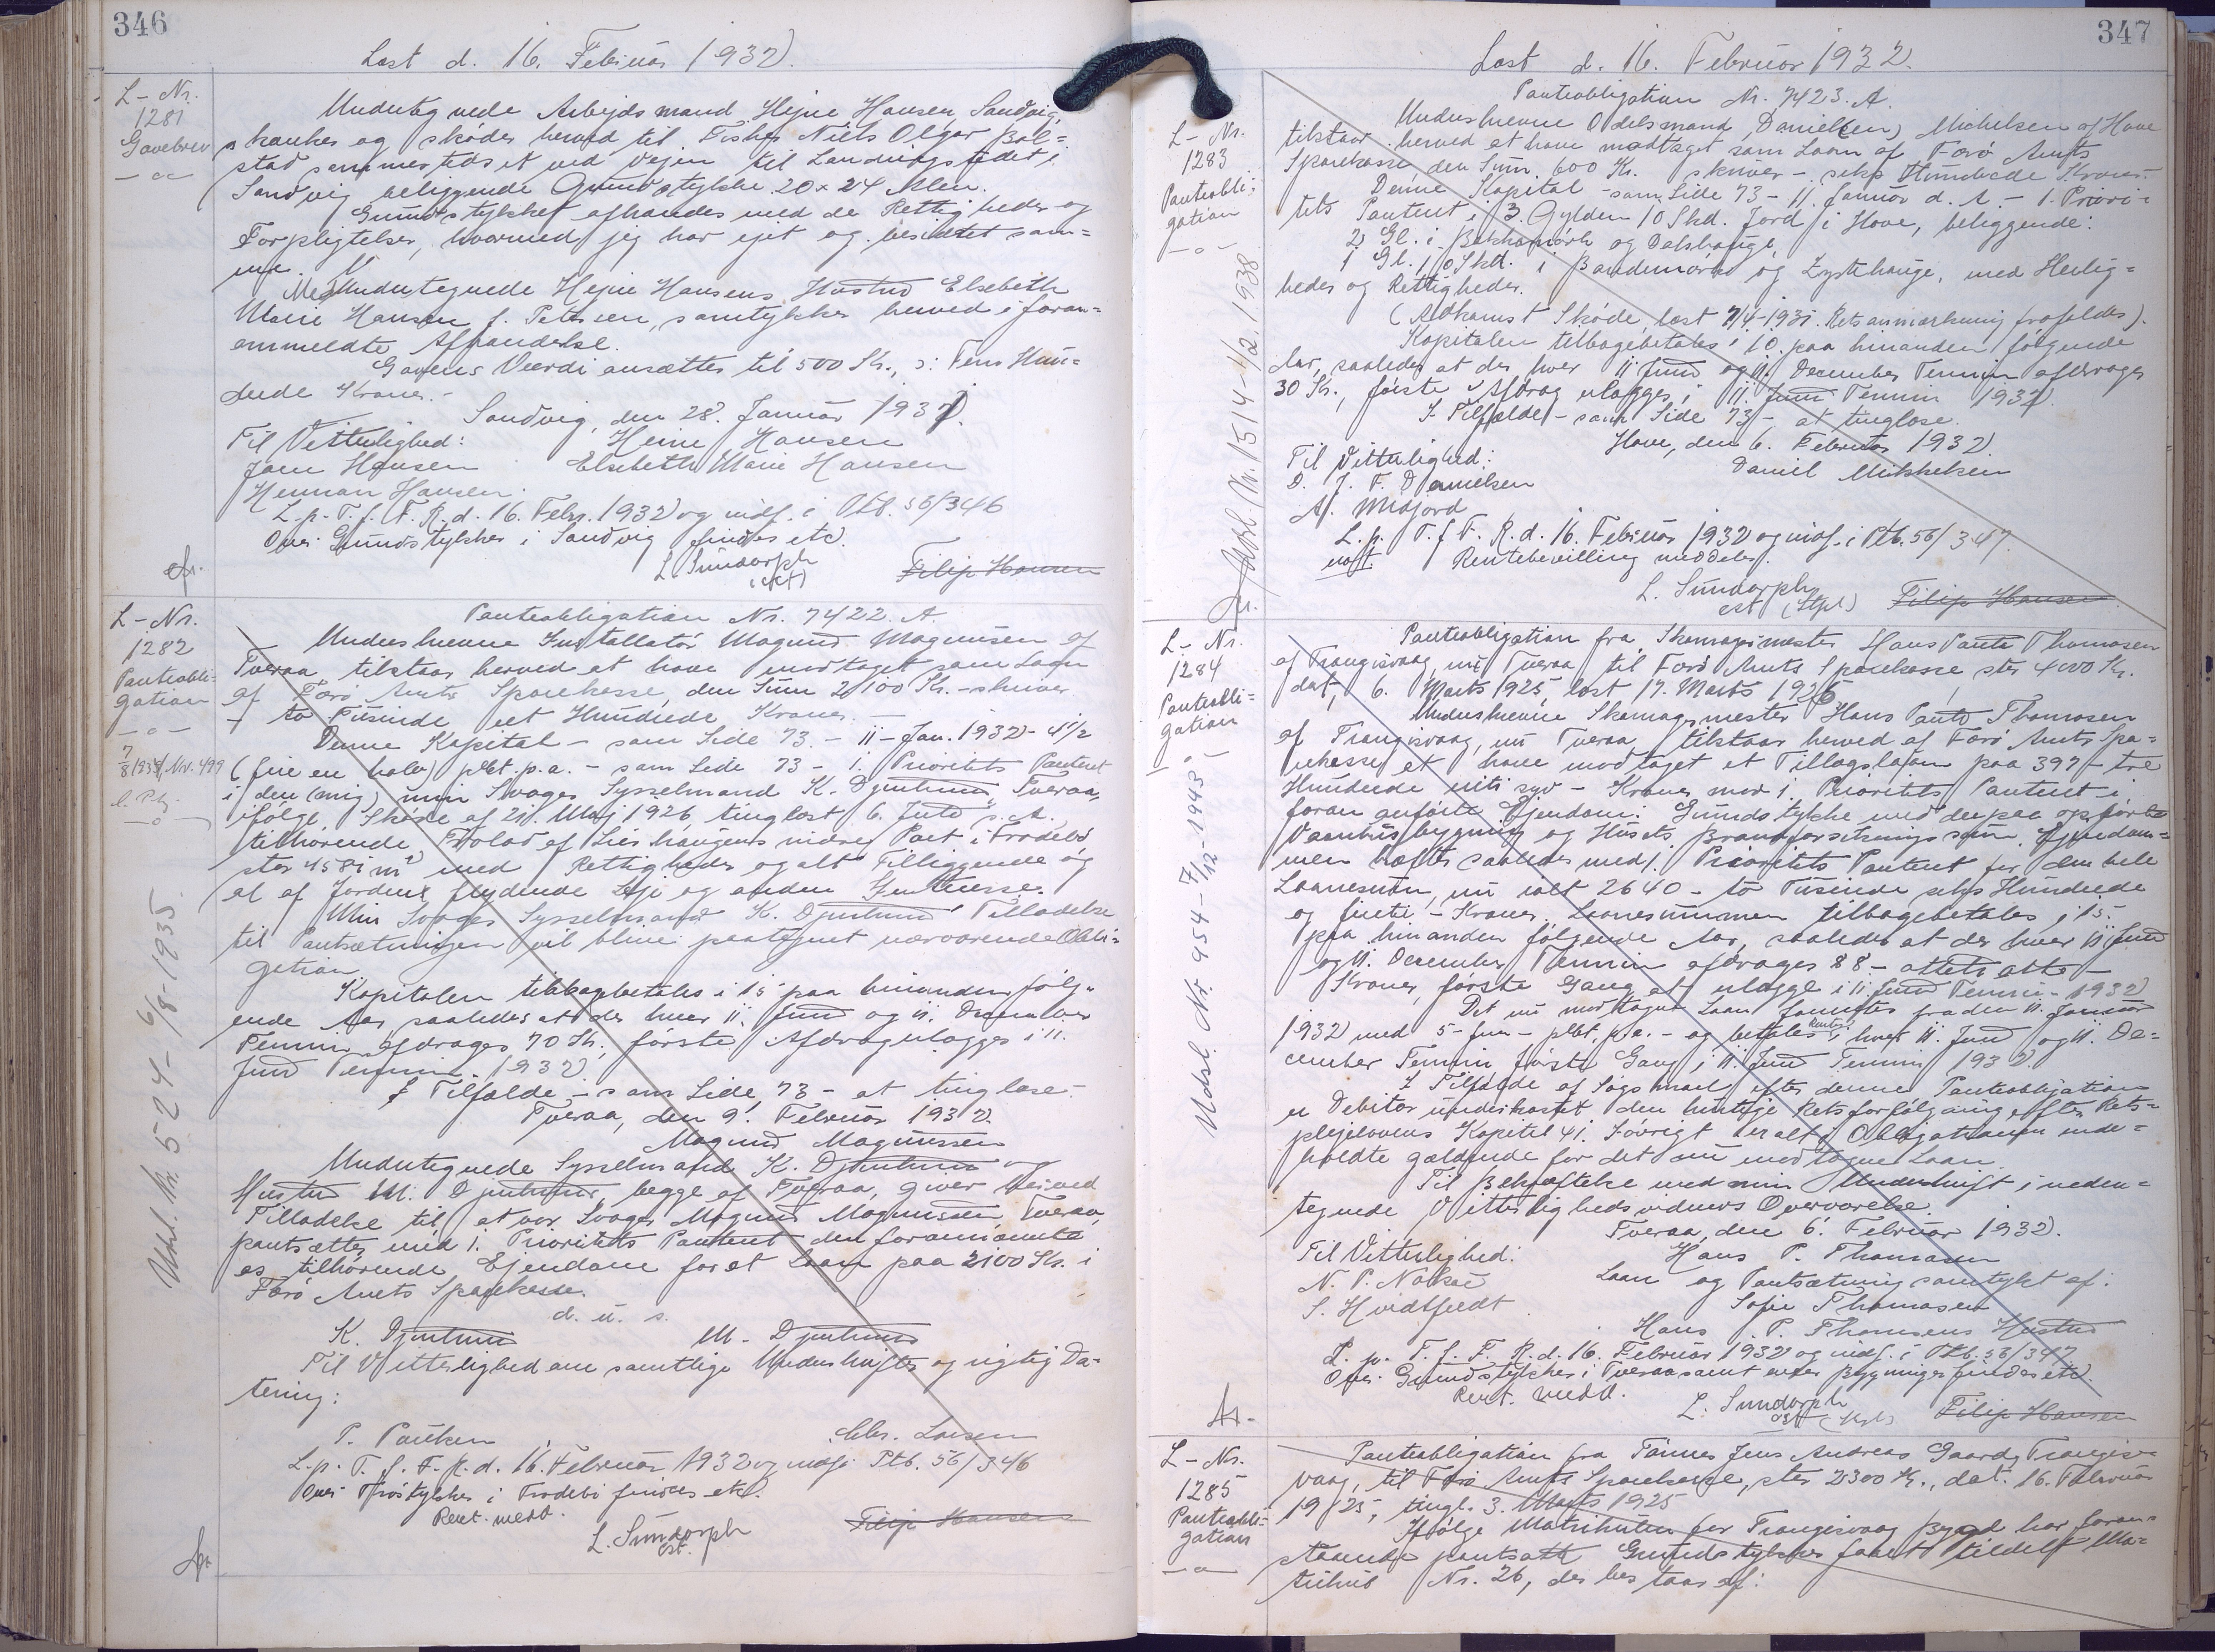 346
Læst d. 16. Februar 1932.
L-Nr.
1281
Gavebrev
Undertegnede Arbejdsmand Hejne Hansen, Sandvig,
skænker og skøder herved til Fisker Niels Olgar Ból=
stad sammesteds et ved Vejen til Landingsstedet i
Sandvig beliggende Grundstykke 20 x 24 Alen.
Grundstykket afhændes med de Rettigheder og
Forpligtelser, hvormed jeg har ejet og besiddet sam=
me.
Medundertegnede Hejne Hansens Hustru Elsebeth
Marie Hansen f. Petersen, samtykker herved i foran=
anmeldte Afhændelse.
Gavens Værdi ansættes til 500 Kr., ɔ: Fem Hun=
drede Kroner.-
Sandvig, den 28. Januar 1932.
Til Vitterlighed: Heine Hansen
Joen Hansen Elsebeth Marie Hansen
Herman Hansen.
L. p. T. f. F. R. d. 16. Febr. 1932 og indf. i Ptb. 56/346
Over Grundstykker i Sandvig findes etc.
L. Sundorph
Filip Hansen
L-Nr.
1282
Panteobli=
gation
Panteobligation Nr. 7422. A.
Underskrevne Installatør Magnus Magnussen af
Tveraa tilstaar herved at have modtaget som Laan
af Færø Amts Sparekasse, den Sum 2100 Kr. - skriver
- to Tusinde eet Hundrede Kroner. -
Denne Kapital - som Side 73 - 11 - Jan. 1932 - 4 1/2
(fire en halv) pCt. p.a. - som Side 73 - 1. Prioritets Panteret
i den (mig) min Svoger Sysselmand K. Djurhuus, Tveraa,
ifølge Skøde af 21. Maj 1926, tinglæst 6. Juli s. A.
tilhørende
stor 4581 m² med Rettigheder og alt Tilliggende og
al af Jorden flydende Leje og anden Indtægt.
Min Svoger Sysselmand K. Djurhuus' Tilladelse
til Pantsætningen vil blive paategnet nærværende Obli=
gation.
Kapitalen tilbagebetales i 15 paa hinanden følg=
ende Aar, saaledes at der hver 11. Juni og 11. December
Termin afdrages 70 Kr., første Afdrag erlægges i 11.
Juni Termin 1932.
I Tilfælde - som Side 73 - at tinglæse -
Tveraa, den 9. Februar 1932.
Magnus Magnussen
Undertegnede Sysselmand K. Djurhuus og
Hustru M. Djurhuus, begge af Tveraa, giver herved
Tilladelse til at vor Svoger Magnus Magnussen, Tveraa,
pantsætter med 1. Prioritets Panteret den forannævnte
os tilhørende Ejendom for et Laan paa 2100 Kr. i
Færø Amts Sparekasse.
d. u. s.
K. Djurhuus M. Djurhuus
Til Vitterlighed om samtlige Underskrifter og rigtig Da=
tering:
P. Poulsen Chr. Larsen
L. p. T. f. F. R. d. 16. Februar 1932 og indf. i Ptb. 56/346
Over i findes etc.
Rent. medd.
L. Sundorph
Filip Hansen
Udsl. Nr. 524 - 6/8-1935.
347
Læst d. 16. Februar 1932.
L-Nr.
1283
Panteobli=
gation
Panteobligation Nr. 7423. A.
Underskrevne Odelsmand Daniel Michelsen af Hove
tilstaar herved at have modtaget som Laan af Færø Amts
Sparekasse, den Sum 600 Kr. skriver - seks Hundrede Kroner.-
Denne Kapital - som Side 73 - 11. Januar d. A. - 1. Priori=
tets Panteret i 3 Gylden 10 Skd. Jord i Hove, beliggende:
2 Gl. i og
1 Gl. 10 Skd. i og med Herlig=
heder og Rettigheder.
(Adkomst Skøde, læst 7/4-1931. Retsanmærkning frafaldes).
Kapitalen tilbagebetales i 10 paa hinanden følgende
Aar, saaledes at der hver 11. Juni og 11. December Termin afdrages
30 Kr., første Afdrag erlægges i 11. Juni Termin 1932.
I Tilfælde - som Side 73 - at tinglæse.
Hove, den 6. Februar 1932.
Til Vitterlighed: Daniel Mikkelsen
D. J. F. Danielsen
A. Midjord
L. p. T. f. F. R. d. 16. Februar 1932 og indf. i Ptb. 56/347.
Rentebevilling meddeles.
L. Sundorph
Filip Hansen
Udsl. Nr. 1514 - 1/2. 1938
L-Nr.
1284
Panteobli=
gation
Panteobligation fra Skomagermester Hans Pauli Thomasen
af Trangisvaag, nu Tveraa til Færø Amts Sparekasse, stor 4000 Kr.
dat. 6. Marts 1925, læst 17. Marts
Underskrevne Skomagermester Hans Pauli Thomasen
af Trangisvaag, nu Tveraa tilstaar herved af Færø Amts Spa=
rekasse at have modtaget et Tillægslaan paa 397 - tre
Hundrede niti syv - Kroner mod 1. Prioritets Panteret i
foran anførte Ejendom: Grundstykke med derpaa opførte
Vaaningsbygning og Husets Brandforsikringssum. Ejendom=
men hæfter saaledes med 1. Prioritets Panteret for den hele
Laanesum, nu ialt 2640 - to Tusinde seks Hundrede
og firti - Kroner. Laanesummen tilbagebetales i 15
paa hinanden følgende Aar, saaledes at der hver 11. Juni
og 11. December Termin afdrages 88 - otteti otte -
Kroner, første Gang at erlægge i 11. Juni Termin 1932.
Det nu modtagne Laan forrentes fra den 11. Januar
1932 med 5 - fem - pCt. p.a. - og betales Renten i hver 11. Juni og 11. De=
cember Termin første Gang i 11. Juni Termin 1932.
I Tilfælde af Søgsmaal efter denne Panteobligation
er Debitor underkastet den hurtige Retsforfølgning efter Rets=
plejelovens Kapitel 41. Iøvrigt er alt i Obligationen inde=
holdte gældende for det nu modtagne Laan.
Til Bekræftelse med min Underskrift i neden=
tegnede Vitterlighedsvidners Overværelse.
Tveraa, den 6. Februar 1932.
Til Vitterlighed: Hans P. Thomasen
N. P. Nolsøe Laan og Pantsætning samtykt af:
S. Hvidtfeldt Sofie Thomasen
Hans P. Thomsens Hustru
L. p. T. f. F. R. d. 16. Februar 1932 og indf. i Ptb. 56/347
Over Grundstykker i Tveraa samt over Bygninger findes etc.
Rent. medd.
L. Sundorph
Filip Hansen
Udsl. Nr. 954 - 7/12-1943
L-Nr.
1285
Panteobli=
gation
Panteobligation fra Tømrer Jens Andreas Gaard, Trangis=
vaag, til Færø Amts Sparekasse, stor 2300 Kr., dat. 16. Februar
1925, tingl. 3. Marts 1925
Ifølge Matrikulen for Trangisvaag Bygd har foran=
staaende pantsatte Grundstykker faaet tildelt Ma=
trikul Nr. 26, der bestaar af: